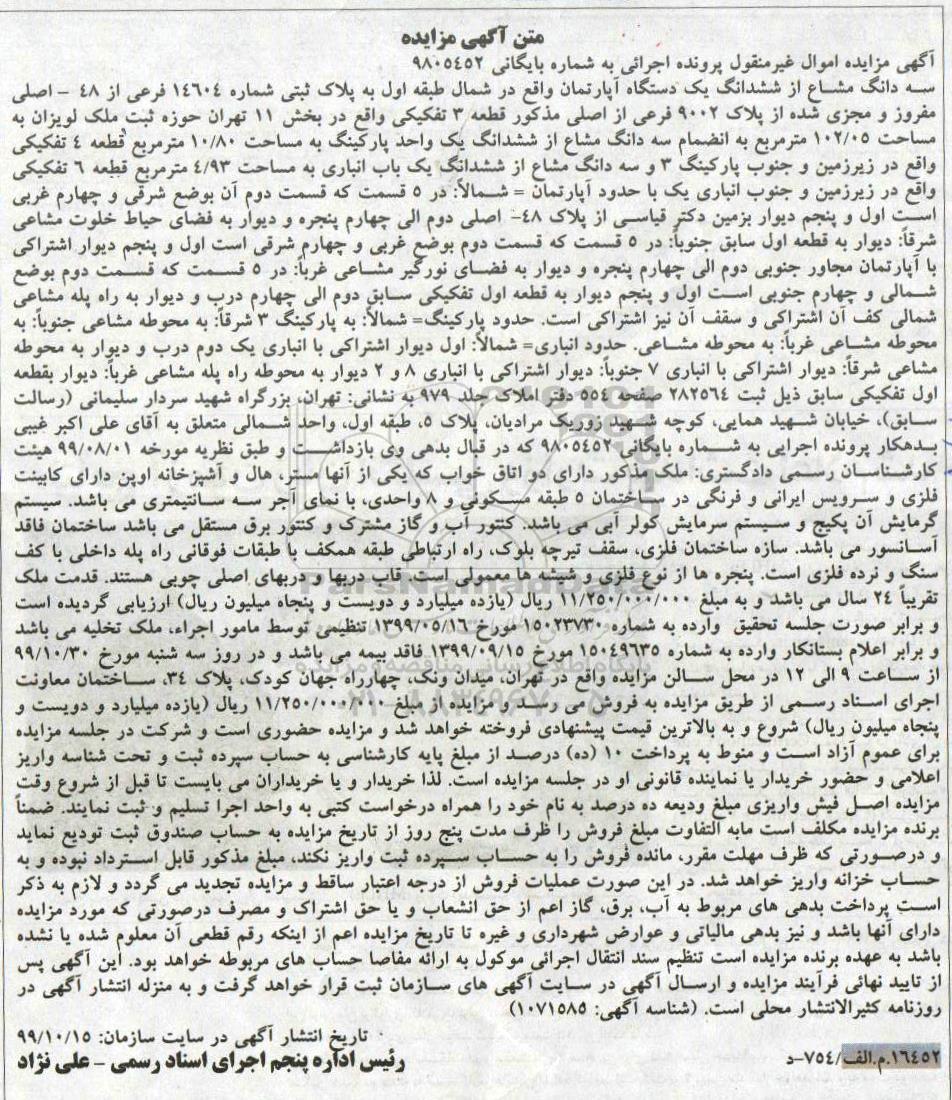 متن آگهی مزایده
آگهی مزایده اموال غیرمنقول پرونده اجرائی به شماره بایگانی ۹۸۰۵۴۵۲
سه دانگ مشاع از ششدانگ یک دستگاه آپارتمان واقع در شمال طبقه اول به پلاک ثبتی شماره ۱۴۶۰۴ فرعی از ۴۸ - اصلی
مفروز و مجزی شده از پلاک ۹۰۰۲ فرعی از اصلی مذکور قطعه ۳ تفکیکی واقع در بخش ۱۱ تهران حوزه ثبت ملک لویزان به
مساحت ۱۰۲/۰۵ مترمربع به انضمام سه دانگ مشاع از ششدانگ یک واحد پارکینگ به مساحت ۱۰/۸۰ مترمربع قطعه ۴ تفکیکی
واقع در زیرزمین و جنوب پارکینگ ۳ و سه دانگ مشاع از ششدانگ یک باب انباری به مساحت ۴/۹۳ مترمربع قطعه ۶ تفکیکی
واقع در زیرزمین و جنوب انباری یک با حدود آپارتمان = شمالاً: در ۵ قسمت که قسمت دوم آن بوضع شرقی و چهارم غربی
است اول و پنجم دیوار بزمین دکتر قیاسی از پلاک ۴۸- اصلی دوم الی چهارم پنجره و دیوار به فضای حیاط خلوت مشاعی
شرقاً: دیوار به قطعه اول سابق جنوباً: در ۵ قسمت که قسمت دوم بوضع غربی و چهارم شرقی است اول و پنجم دیوار اشتراکی
با آپارتمان مجاور جنوبی دوم الی چهارم پنجره و دیوار به فضای نورگیر مشاعی غرباً: در ۵ قسمت که قسمت دوم بوضع
شمالی و چهارم جنوبی است اول و پنجم دیوار به قطعه اول تفکیکی سابق دوم الی چهارم درب و دیوار به راه پله مشاعی
شمالی کف آن اشتراکی و سقف آن نیز اشتراکی است. حدود پارکینگ= شمالاً: به پارکینگ ۳ شرقاً: به محوطه مشاعی جنوباً: به
محوطه مشاعی غرباً: به محوطه مشاعی. حدود انباری= شمالاً: اول دیوار اشتراکی با انباری یک دوم درب و دیوار به محوطه
مشاعی شرقاً: دیوار اشتراکی با انباری ۷ جنوباً: دیوار اشتراکی با انباری ۸ و ۲ دیوار به محوطه راه پله مشاعی غرباً: دیوار بقطعه
اول تفکیکی سابق ذیل ثبت ۲۸۲۵۶۴ صفحه ۵۵۴ دفتر املاک جلد ۹۷۹ به نشانی: تهران، بزرگراه شهید سردار سلیمانی (رسالت
سابق)، خیابان شهید همایی، کوچه شهید زوریک مرادیان، پلاک ۵، طبقه اول، واحد شمالی متعلق به آقای علی اکبر غیبی
بدهکار پرونده اجرایی به شماره بایگانی ۹۸۰۵۴۵۲ که در قبال بدهی وی بازداشت و طبق نظریه مورخه ۹۹/۰۸/۰۱ هیئت
کارشناسان رسمی دادگستری: ملک مذکور دارای دو اتاق خواب که یکی از آنها مستر، هال و آشپزخانه اوپن دارای کابینت
فلزی و سرویس ایرانی و فرنگی در ساختمان ۵ طبقه مسکونی و ۸ واحدی، با نمای آجر سه سانتیمتری می باشد. سیستم
گرمایش آن پکیج و سیستم سرمایش کولر آبی می باشد. کنتور آب و گاز مشترک و کنتور برق مستقل می باشد ساختمان فاقد
آسانسور می باشد. سازه ساختمان فلزی، سقف تیرچه بلوک، راه ارتباطی طبقه همکف با طبقات فوقانی راه پله داخلی با کف
سنگ و نرده فلزی است. پنجره ها از نوع فلزی و شیشه ها معمولی است. قاب دربها و دربهای اصلی چوبی هستند. قدمت ملک
تقریباً ۲۴ سال می باشد و به مبلغ ۱۱/۲۵۰/۰۰۰/۰۰۰ ریال (یازده میلیارد و دویست و پنجاه میلیون ریال) ارزیابی گردیده است
و برابر صورت جلسه تحقیق وارده به شماره ۱۵۰۲۳۷۳۰ مورخ ۱۳۹۹/۰۵/۱۶ تنظیمی توسط مامور اجراء، ملک تخلیه می باشد
و برابر اعلام بستانکار وارده به شماره ۱۵۰۴۹۶۳۵ مورخ ۱۳۹۹/۰۹/۱۵ فاقد بیمه می باشد و در روز سه شنبه مورخ ۹۹/۱۰/۳۰
از ساعت ۹ الی ۱۲ در محل سالن مزایده واقع در تهران، میدان ونک، چهارراه جهان کودک، پلاک ۳۴، ساختمان معاونت
اجرای اسناد رسمی از طریق مزایده به فروش می رسد و مزایده از مبلغ ۱۱/۲۵۰/۰۰۰/۰۰۰ ریال (یازده میلیارد و دویست و
پنجاه میلیون ریال) شروع و به بالاترین قیمت پیشنهادی فروخته خواهد شد و مزایده حضوری است و شرکت در جلسه مزایده
برای عموم آزاد است و منوط به پرداخت ۱۰ (ده) درصد از مبلغ پایه کارشناسی به حساب سپرده ثبت و تحت شناسه واریز
اعلامی و حضور خریدار یا نماینده قانونی او در جلسه مزایده است. لذا خریدار و یا خریداران می بایست تا قبل از شروع وقت
مزایده اصل فیش واریزی مبلغ ودیعه ده درصد به نام خود را همراه درخواست کتبی به واحد اجرا تسلیم و ثبت نمایند. ضمناً
برنده مزایده مکلف است مابه التفاوت مبلغ فروش را ظرف مدت پنج روز از تاریخ مزایده به حساب صندوق ثبت تودیع نماید
و درصورتی که ظرف مهلت مقرر، مانده فروش را به حساب سپرده ثبت واریز نکند، مبلغ مذکور قابل استرداد نبوده و به
حساب خزانه واریز خواهد شد. در این صورت عملیات فروش از درجه اعتبار ساقط و مزایده تجدید می گردد و لازم به ذکر
است پرداخت بدهی های مربوط به آب، برق، گاز اعم از حق انشعاب و یا حق اشتراک و مصرف درصورتی که مورد مزایده
دارای آنها باشد و نیز بدهی مالیاتی و عوارض شهرداری و غیره تا تاریخ مزایده اعم از اینکه رقم قطعی آن معلوم شده یا نشده
باشد به عهده برنده مزایده است تنظیم سند انتقال اجرائی موکول به ارائه مفاصا حساب های مربوطه خواهد بود. این آگهی پس
از تایید نهائی فرآیند مزایده و ارسال آگهی در سایت آگهی های سازمان ثبت قرار خواهد گرفت و به منزله انتشار آگهی در
روزنامه کثیرالانتشار محلی است. (شناسه آگهی: ۱۰۷۱۵۸۵)
تاریخ انتشار آگهی در سایت سازمان: ۹۹/۱۰/۱۵
رئیس اداره پنجم اجرای اسناد رسمی - علی نژاد
۱۶۴۵۲.م.الف/۷۵۴-د